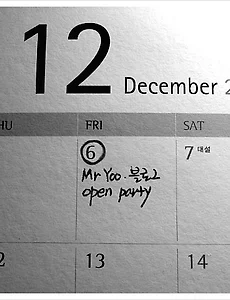 12 December 2
HU FRI SAT
6 7 대설
Mr Yoo. 블로그
open party
2 13 14